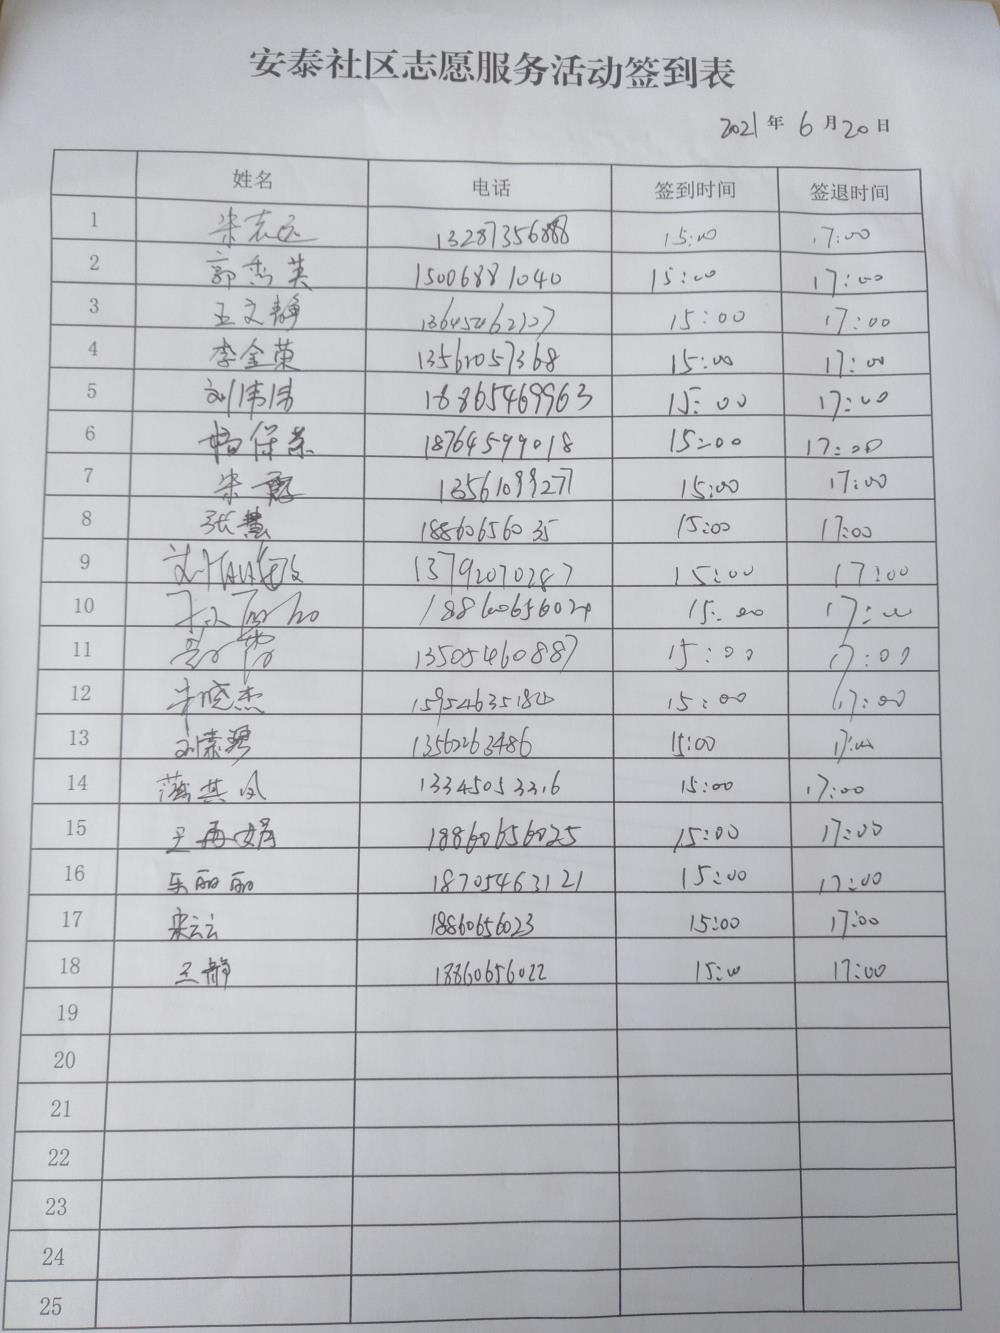 安泰社区志愿服务活动签到表
2021年 6月20日
姓名 电话 签到时间 签退时间
1 宋志远 13287356888 15:00 17:00
2 郭秀英 15006881040 15:00 17:00
3 王文静 15:00 17:00
4 李金荣 13561057368 15:00 17:00
5 刘伟伟 18865469963 15:00 17:00
6 杨保荣 18764599018 15:00 17:00
7 宋 13561099277 15:00 17:00
8 张慧 18860656035 15:00 17:00
9 13792070287 15:00 17:00
10 18860656024 15:00 17:00
11 13505460887 15:00 17:00
12 牛晓杰 15:00 17:00
13 刘素碧 15:00 17:00
14 蒲其凤 15:00 17:00
15 王再娟 18860656025 15:00 17:00
16 乐丽丽 18705463121 15:00 17:00
17 宋云云 18860656023 15:00 17:00
18 王静 18860656022 15:00 17:00
19
20
21
22
23
24
25